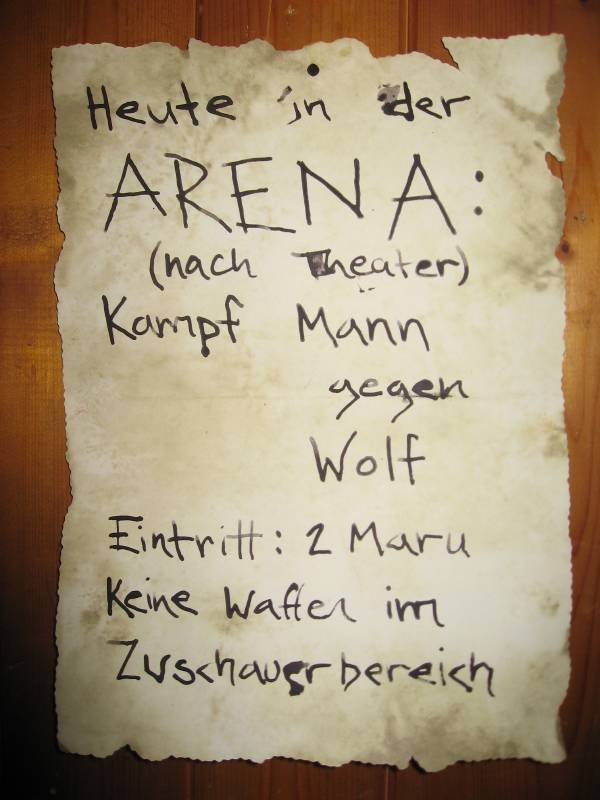 Heute in der
ARENA:
(nach Theater)
Kampf Mann
gegen
Wolf
Eintritt: 2 Maru
Keine Waffen im
Zuschauerbereich